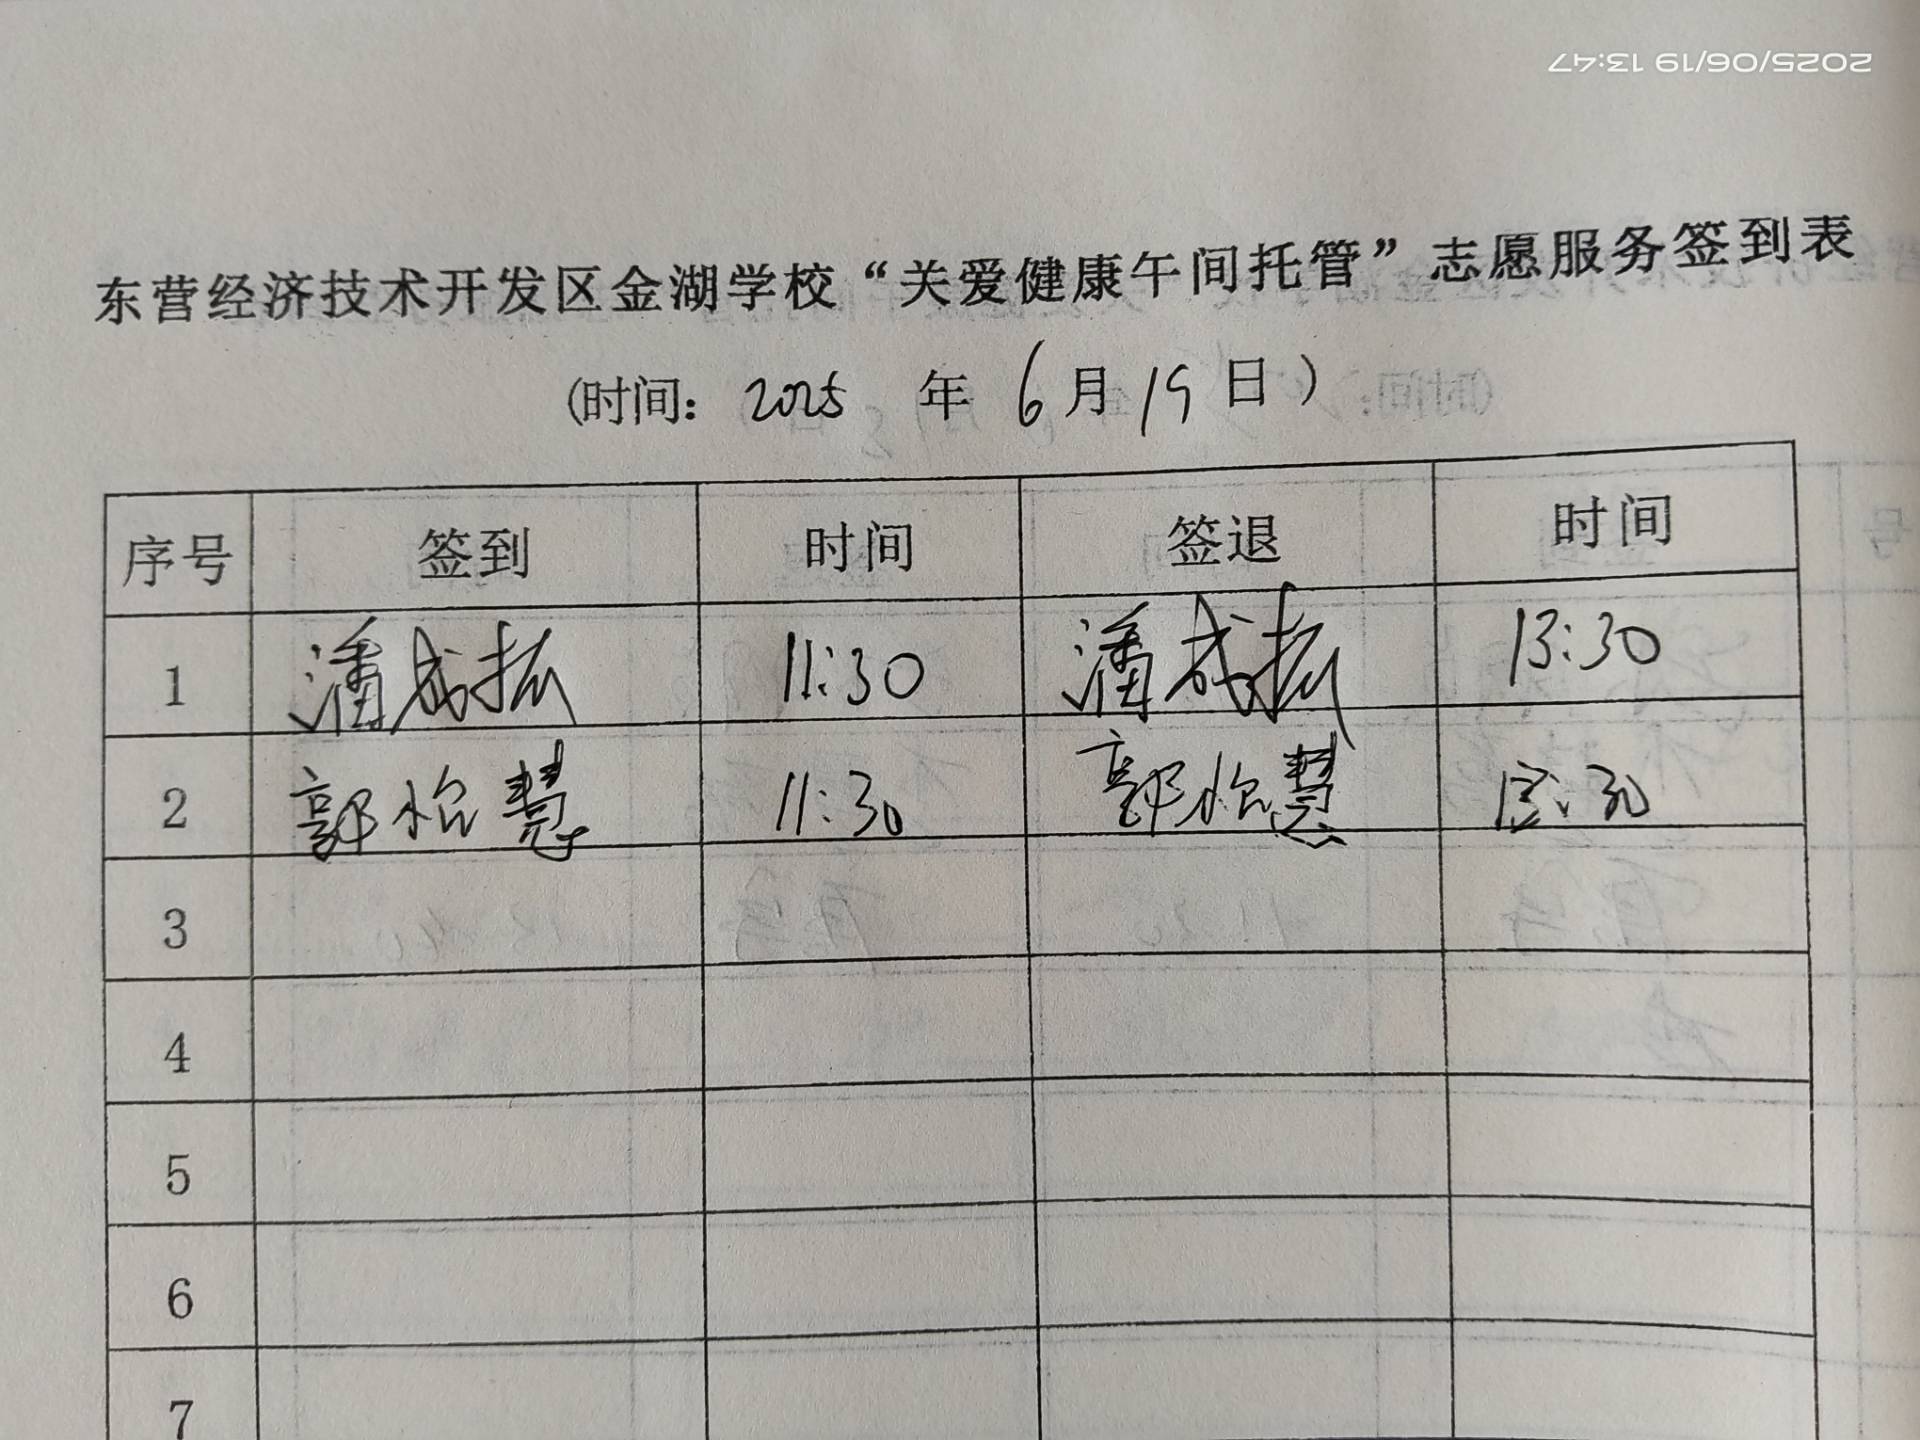 2025/06/19 13:47
东营经济技术开发区金湖学校“关爱健康午间托管”志愿服务签到表
(时间: 2025 年 6 月 19 日)
序号 签到 时间 签退 时间
1 潘成振 11:30 潘成振 13:30
2 郭怡慧 11:30 郭怡慧 13:30
3
4
5
6
7